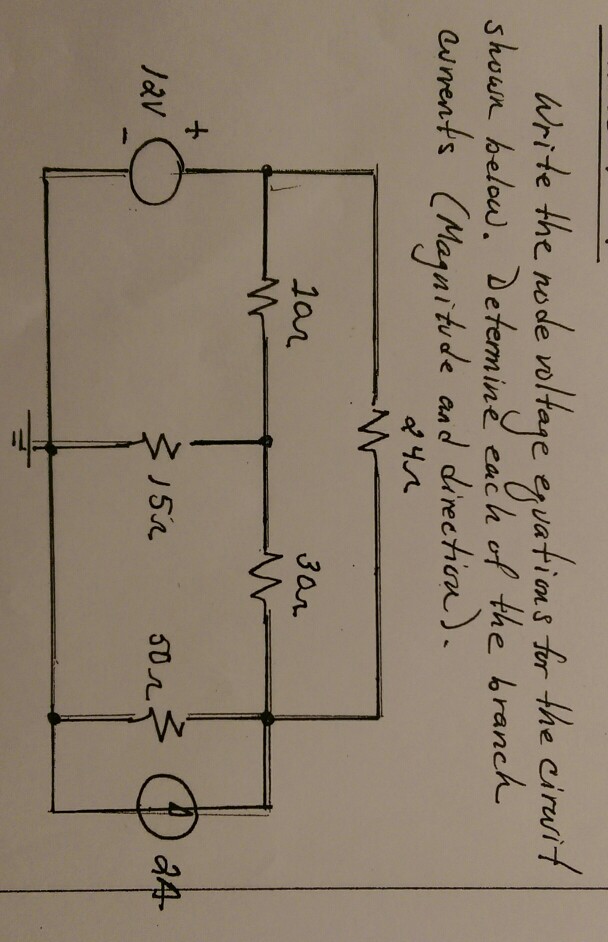 Write the node voltage equations for the circuit
shown below. Determine each of the branch
currents (Magnitude and direction).
24Ω
10Ω 30Ω
+
12V 15Ω 50Ω 2A
-